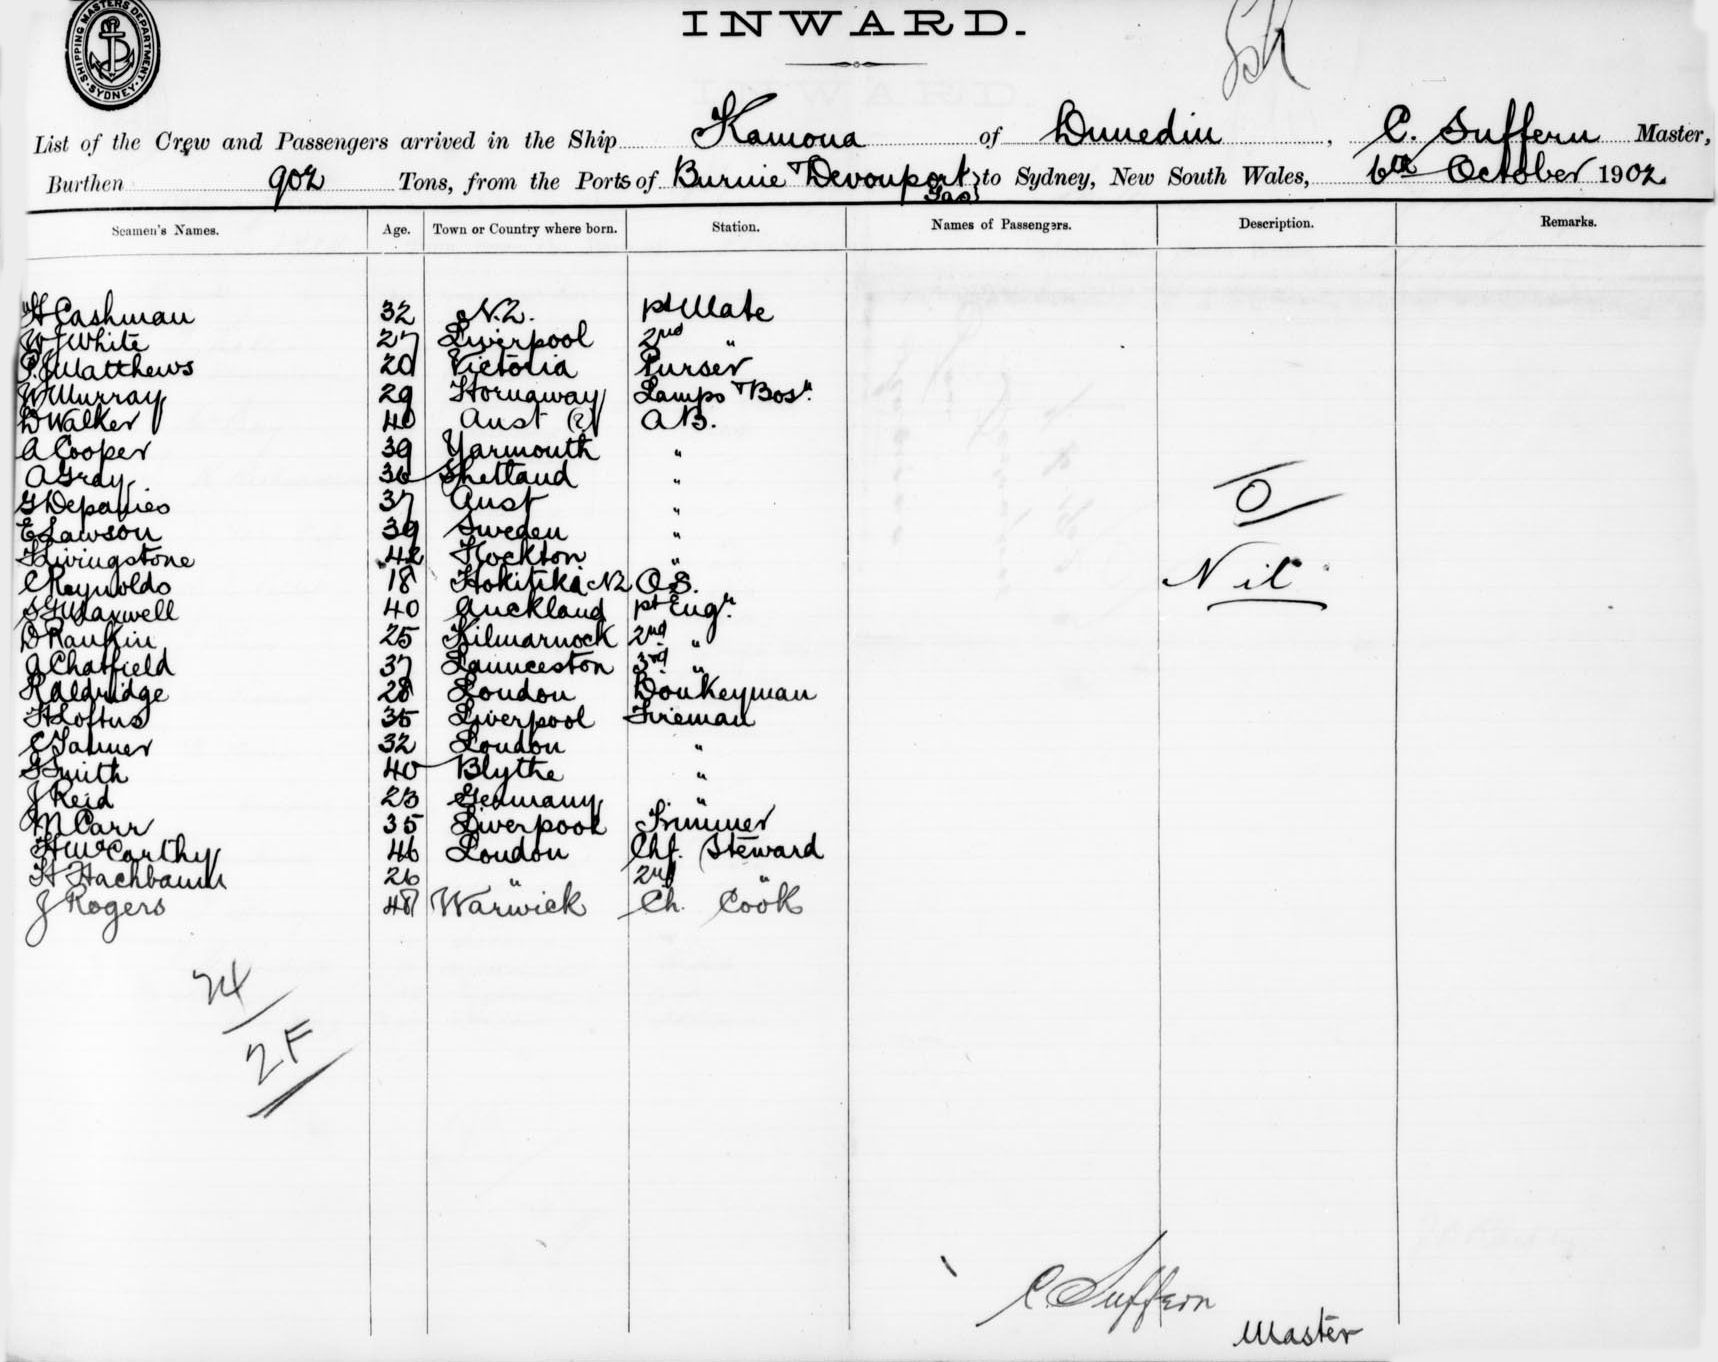 SHIPPING MASTERS DEPARTMENT · SYDNEY ·
INWARD.
List of the Crew and Passengers arrived in the Ship Kamona of Dunedin, C. Suffern Master,
Burthen 902 Tons, from the Ports of Burnie & Devonport Tas to Sydney, New South Wales, 6th October 1902
Seamen's Names. Age. Town or Country where born. Station. Names of Passengers. Description. Remarks.
H Cashman 32 N.Z. 1st Mate
W J White 27 Liverpool 2nd "
Matthews 20 Victoria Purser
W Murray 29 Lamps & Bosn
D Walker 40 Aust A B.
A Cooper 39 Yarmouth "
A Gray 36 Shetland "
G Depanies 37 Aust "
E Lawson 39 Sweden "
Livingstone 42 Hockton "
C Reynolds 18 Hokitika NZ O S.
S G Maxwell 40 Auckland 1st Engr.
D Rankin 25 Kilmarnock 2nd "
A Chatfield 37 Launceston 3rd "
R Aldridge 28 London Donkeyman
H Loftus 35 Liverpool Fireman
C Tanner 32 London "
G Smith 40 Blythe "
J Reid 23 Germany "
M Carr 35 Liverpool Trimmer
H McCarthy 46 London Chf. Steward
H Hachbaum 26 " 2nd "
J Rogers 48 Warwick Ch. Cook
O
Nil
24
2F
C Suffern
Master